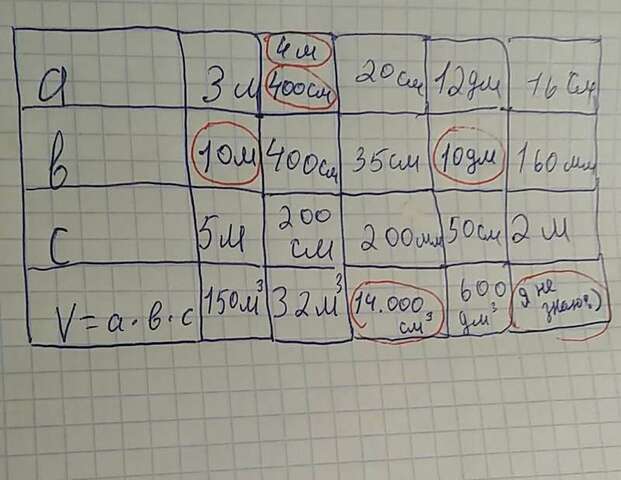 4м
а 3м 400см 20см 12дм 16 см
в 10м 400см 35см 10дм 160мм
с 5м 200 см 200мм 50см 2 м
V=а·в·с 150м³ 32м³ 14.000 см³ 600 дм³ я не знаю:)